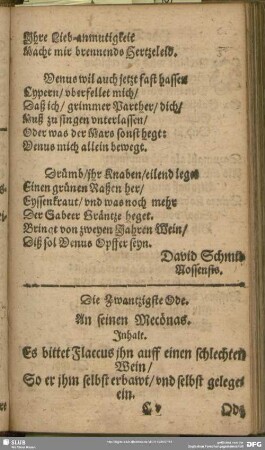 Ihre Lieb-anmutigkeit
Macht mir brennends Hertzeleid.
Venus wil auch jetzt fast hassen
Cypern/ vberfellet mich/
Daß ich/ grimmer Parther/ dich/
Muß zu singen vnterlassen/
Oder was der Mars sonst hegt:
Venus mich allein bewegt.
Drümb/ jhr Knaben/ eilend leget
Einen grünen Raßen her/
Eyssenkraut/ vnd was noch mehr
Der Sabeer Gräntze heget.
Bringt von zweyen Jahren Wein/
Diß sol Venus Opffer seyn.
David Schmid
Nossensis.
Die Zwantzigste Ode.
An seinen Mecönas.
Inhalt.
Es bittet Flaccus jhn auff einen schlechten
Wein/
So er jhm selbst erbawt/ vnd selbst geleget
ein.
C v
Ode
SLUB
DFG